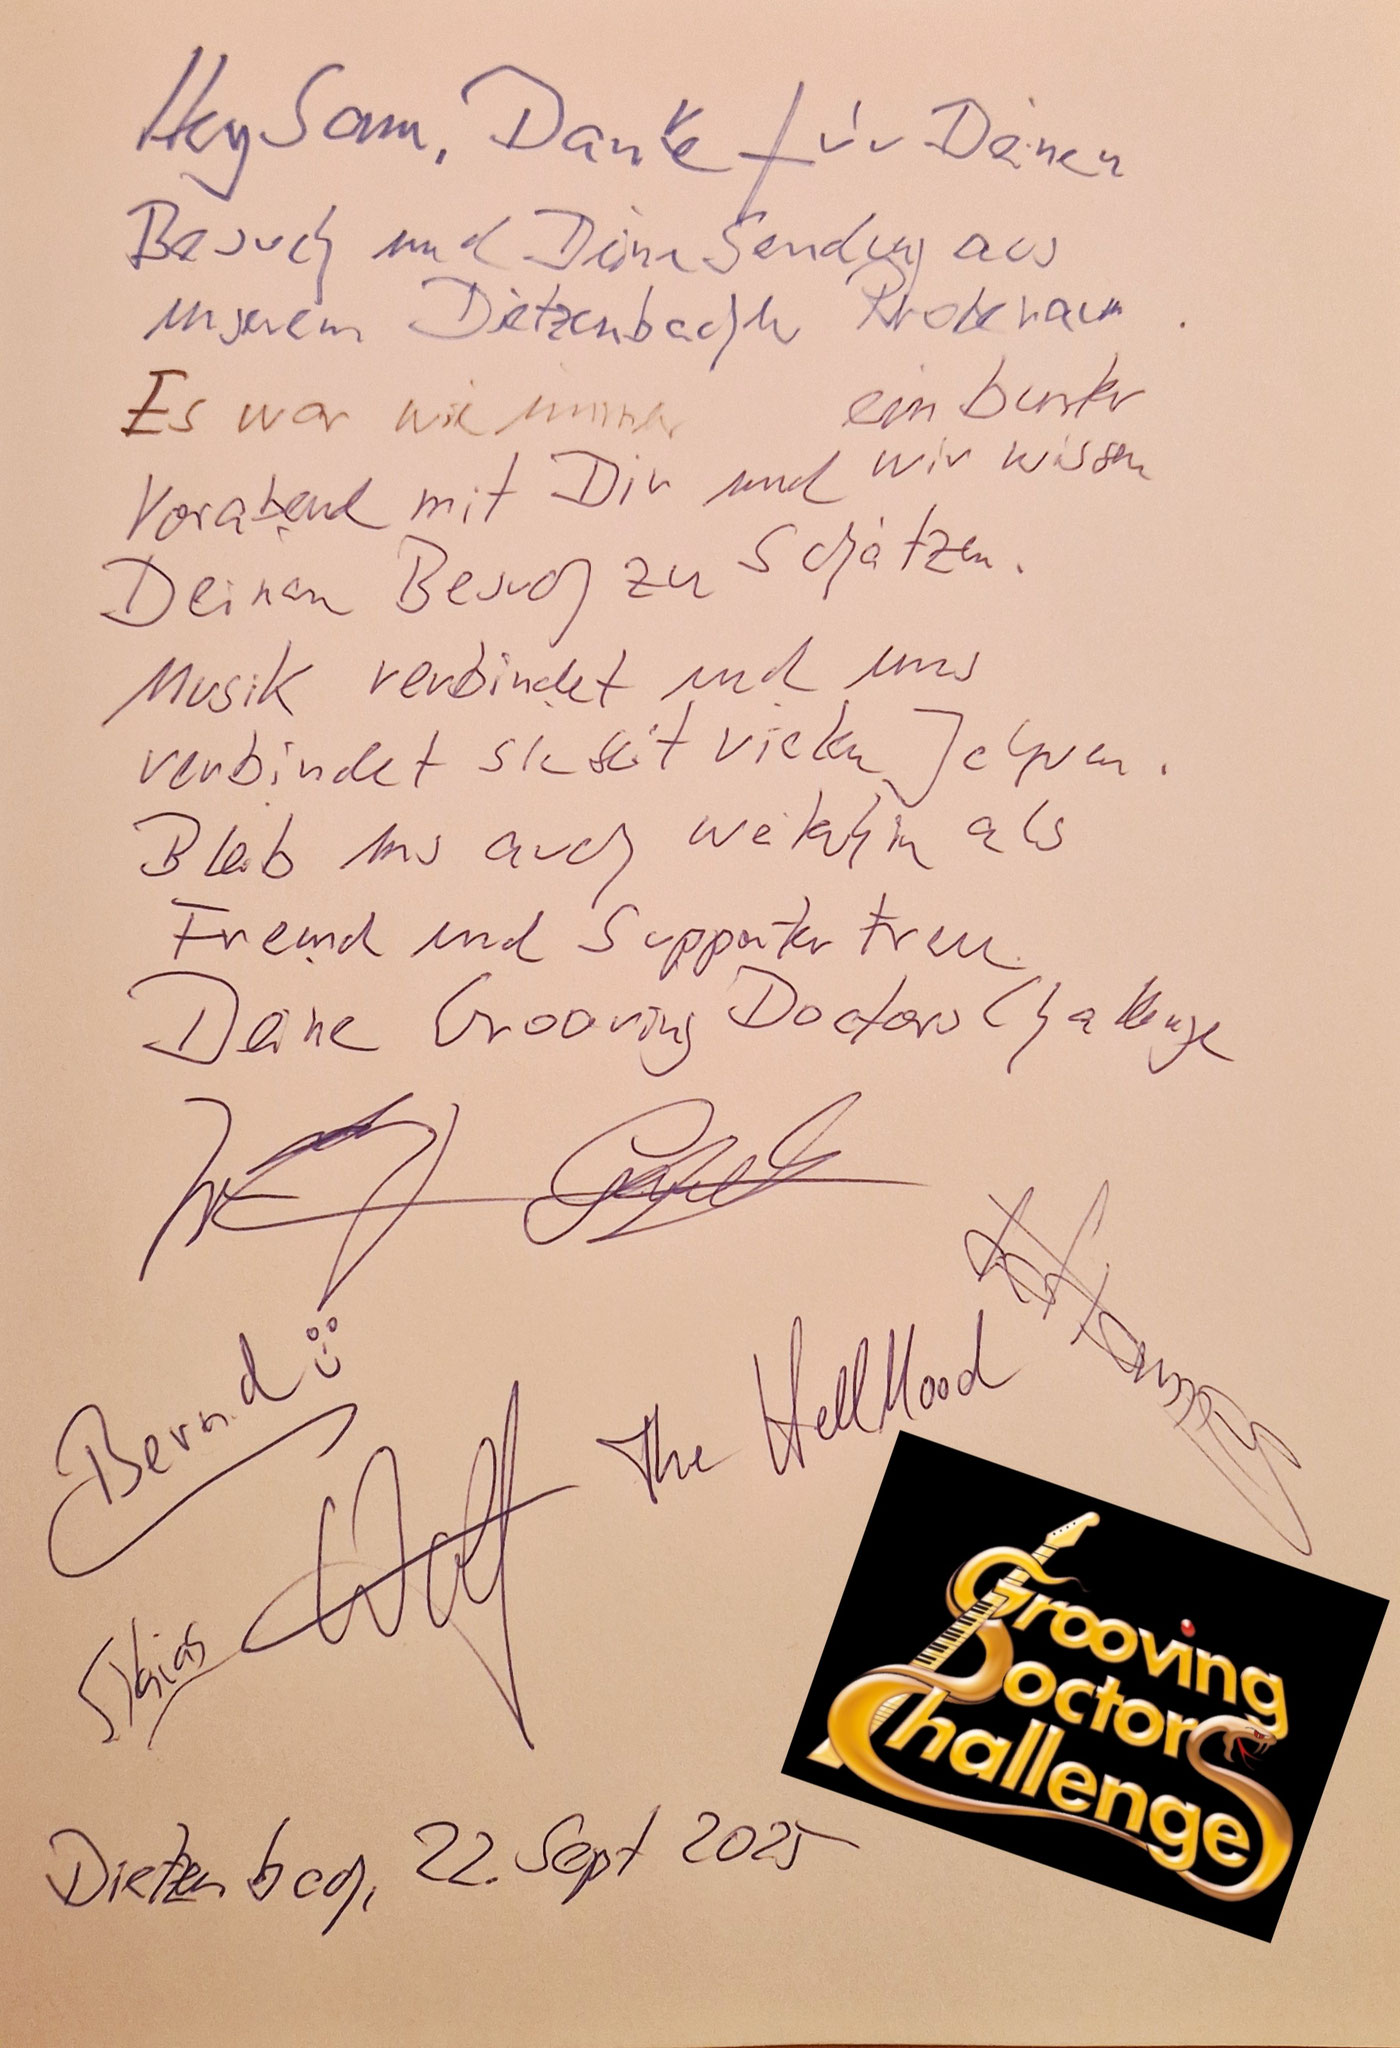 Hey Sam, Danke für Deinen
Besuch und Deine Sendung aus
unserem Dietzenbacher Proberaum.
Es war wie immer ein bunter
Vorabend mit Dir und wir wissen
Deinen Besuch zu schätzen.
Musik verbindet und uns
verbindet sie seit vielen Jahren.
Bleib uns auch weiterhin als
Freund und Supporter treu.
Deine Grooving Doctors Challenge
Bernd
The Hell Mood
Wolf
Dietzenbach, 22. Sept 2025
Grooving
Doctors
Challenge